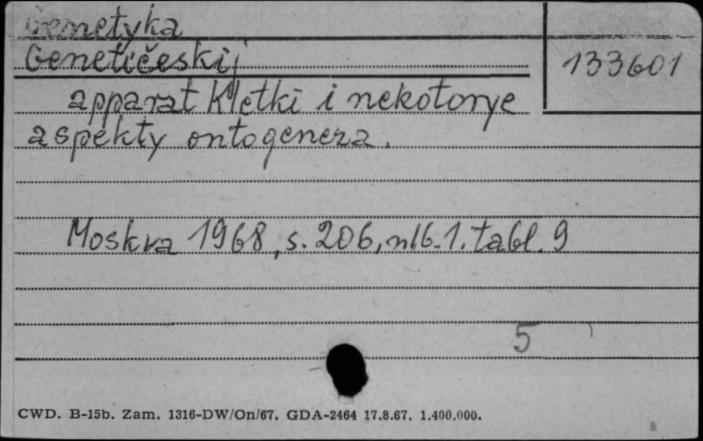 Genetyka
Genetičeskij
133601
apparat kletki i nekotorye
aspekty ontogeneza.
Moskva 1968, s. 206, nlb. 1. tabl. 9
5
CWD. B-15b. Zam. 1316-DW/On/67. GDA-2464 17.8.67. 1.400.000.